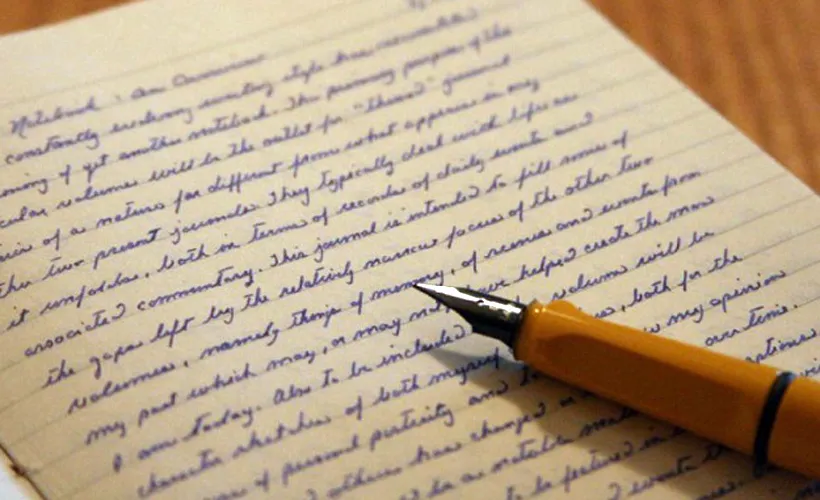 Notebook: An Overview
constantly evolving writing style has necessitated
of yet another notebook. The primary purpose of this
volumes will be the outlet for "themed" journal
of a nature far different from what appears in my
other two present journals. They typically deal with life as
it unfolds, both in terms of records of daily events and
associated commentary. This journal is intended to fill some of
the gaps left by the relatively narrow focus of the other two
volumes, namely things of memory, of scenes and events from
my past which may, or may not have helped create the man
I am today. Also to be included volume will be
character sketches of both myself both for the
of personal perticity and my opinion
others have changed over time.
be a notable
to be featured in